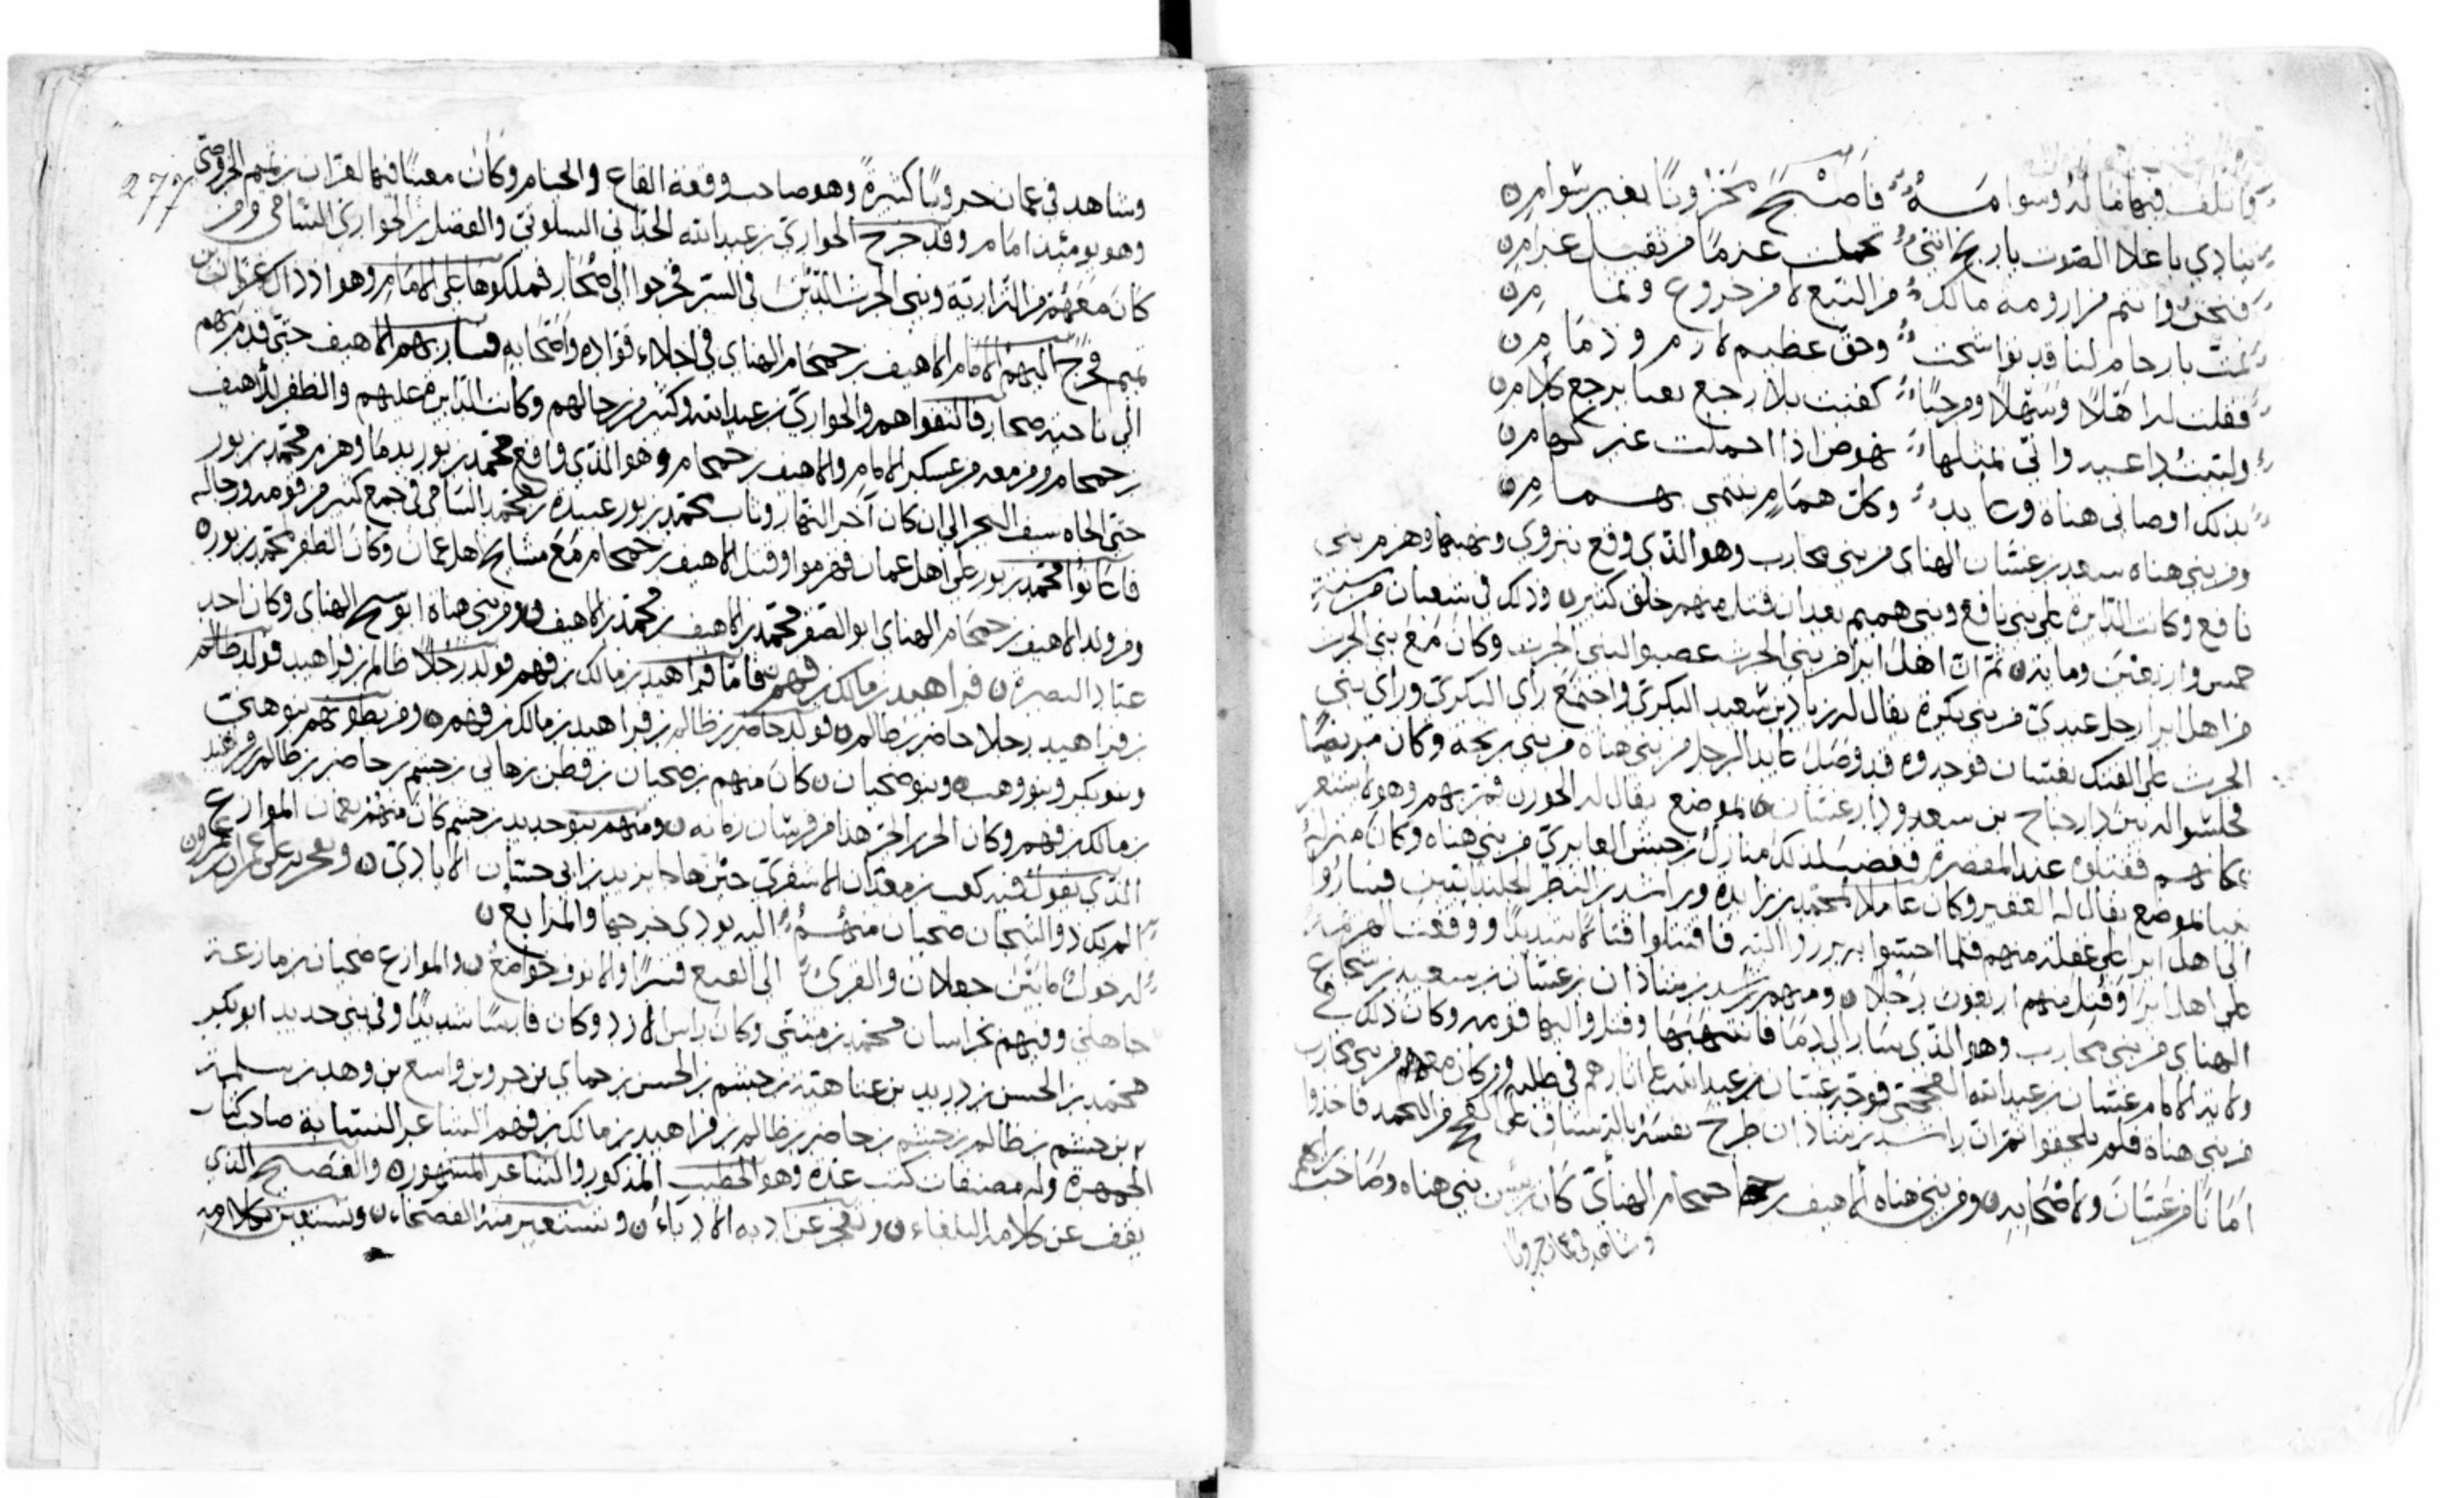 فاصبح محزونا بغير سوامرن
ينادي باعلا الصوت يا ربح انني تحملت عزما من ثقيل عزامرن
فنحن وانتم من ارومة مالك من النبع لا من خروع وثمامرن
نمت بارحام لنا قد تواشجت وحق عظيم لازم وذمامرن
فقلت له اهلا وسهلا ومرحبا كفيت بلا رجع بعيا برجع كلامرن
نهوض اذا احملت غير كهامرن
بذلك اوصاني هناه وعايد وكل همام ينمى بهمامرن
ومن بني هناه سعد بن غسان الهناي من بني محارب وهو الذي وقع بنزوى ونهبها وهزم بني
نافع وكانت الدايرة على بني نافع وبني هميم بعد ان قتل منهم خلق كثيرن وذلك في شعبان من سنة
خمس واربعين ومايةن ثم ان اهل ابرا من بني الحرث عصبوا لبني الحرث وكان مع بني الحرث
من اهل ابرا رجل عبدي من بني بكرة يقال له زياد بن سعيد البكري واجتمع راي البكري وراي بني
الحرث على الفتك بغسان فوجدوه قد وصل عايدا لرجل من بني هناه من بني ربحه وكان مريضا
فجلسوا له بين دار جناح بن سعد ودار غسان بموضع يقال له الخورن فمر بهم وهو لا يشعر
بمكانهم فقتلوه عند المقصرة فغضب لذلك منازل بن خنبش العابري من بني هناه وكان منزله
بنبا لموضع يقال له العقير وكان عاملا لمحمد بن زايدة وراشد بن النضر الجلندانيين فساروا
الى اهل ابرا على غفلة منهم فلما احسوا بهم برزوا اليه فاقتتلوا قتالا شديدا ووقعت الهزيمة
على اهل ابرا وقتل منهم اربعون رجلان ومنهم راشد بن شاذان بن غسان بن سعيد بن شجاع
الهناي من بني محارب وهو الذي سار الى دما فانتهبها وقتل واليها قومه وكان ذلك في
ولاية الامام غسان بن عبد الله الفجحي فوجه غسان بن عبد الله على اثارهم في طلبه ومن كان معهم من بني محارب
من بني هناه فلم يلحقوا ثم ان راشد بن شاذان طرح نفسه
امانا من غسان ولاصحابهن ومن بني هناه الاهيف بن حمحام الهنأي كان رئيس بني هناه وصاحب رايهم
وشاهد في عمان حروبا
277
وشاهد في عمان حروبا كثيرة وهو صاحب وقعة القاع والخيام وكان معينا فيها لعزان بن تميم الخروصي
وهو يومئذ امام وقد خرج الحواري بن عبد الله الحداني السلوتي والفضل بن الحواري السامي ومن
كان معهم من النزارية وبني الحرث الذين في الستر فخرجوا الى صحار فملكوها على الامام وهو اذ ذاك عزان بن
تميم فخرج اليهم الامام الاهيف بن حمحام الهناي في اجلاء قواده واصحابه فسار بهم الاهيف حتى قدم بهم
الى ناحية صحار فالتقوا هم والحواري بن عبد الله وكثير من رجالهم وكانت الدايرة عليهم والظفر للأهيف
بن حمحام ومن معه من عسكر الامام والاهيف بن حمحام وهو الذي واقع محمد بن بور بدما وهزم محمد بن بور
حتى الجاه سيف البحر الى ان كان آخر النهار وثاب لمحمد بن بور عبيدة بن محمد السامي في جمع كثير من قومه ورجاله
فاعانوا محمد بن بور على اهل عمان فهزموا وقتل الاهيف بن حمحام مع مشايخ اهل عمان وكان الظفر لمحمد بن بورن
ومن ولد الاهيف بن حمحام الهناي ابو الصقر محمد بن الاهيف بن محمد بن الاهيف ومن بني هناه ابو شيخ الهناي وكان احد
عباد البصرةن فراهيد بن مالك بن فهم فاما فراهيد بن مالك بن فهم فولد رجلا ظالم بن فراهيد فولد ظالم
بن فراهيد رجلا حاضر بن ظالمن فولد حاضر بن ظالم بن فراهيد بن مالك بن فهمن ومن بطونهم بنو هني
وبنو بكر وبنو وهب وبنو ضحيان ن كان منهم بن ضحيان بن قطن بن هاني بن خيثم بن حاضر بن ظالم بن فراهيد
بن مالك بن فهم وكان الحرب الحر هذا من فرسان زمانه ن ومنهم بنو حديد بن جشم كان منهم نعمان الموازع
الذي يقول فيه كعب بن معدان الاشقري حين هاجا يزيد بن ابي حسان الايادي ن ويفخر به على
الم يك ذو التيجان ضحيان منهم اليه يودي خرجها والمرابع ن
له حول ما بين جعلان والقرى الى القيع قسرا والانوف خواضع ن والموازع ضحيان بن مازعة
جاهلي وفيهم بخراسان محمد بن مثنى وكان راس الازد وكان فارسا شديدا وفي بني حديد ابو بكر
محمد بن الحسن بن دريد بن عتاهية بن حنتم بن الحسن بن حمامي بن جرو بن واسع بن وهب بن سلمة
بن جشم بن ظالم بن جشم بن حاضر بن ظالم بن فراهيد بن مالك بن فهم الشاعر النسابة صاحب كتاب
الجمهرة وله مصنفات كتب عدة وهو الخطيب المذكور والشاعر المشهورن والفصيح الذي
يقف عن كلامه البلغاءن ويعجز عن ادبه الادباءن ويستعير منه الفصحاءن ويستعين بكلامه